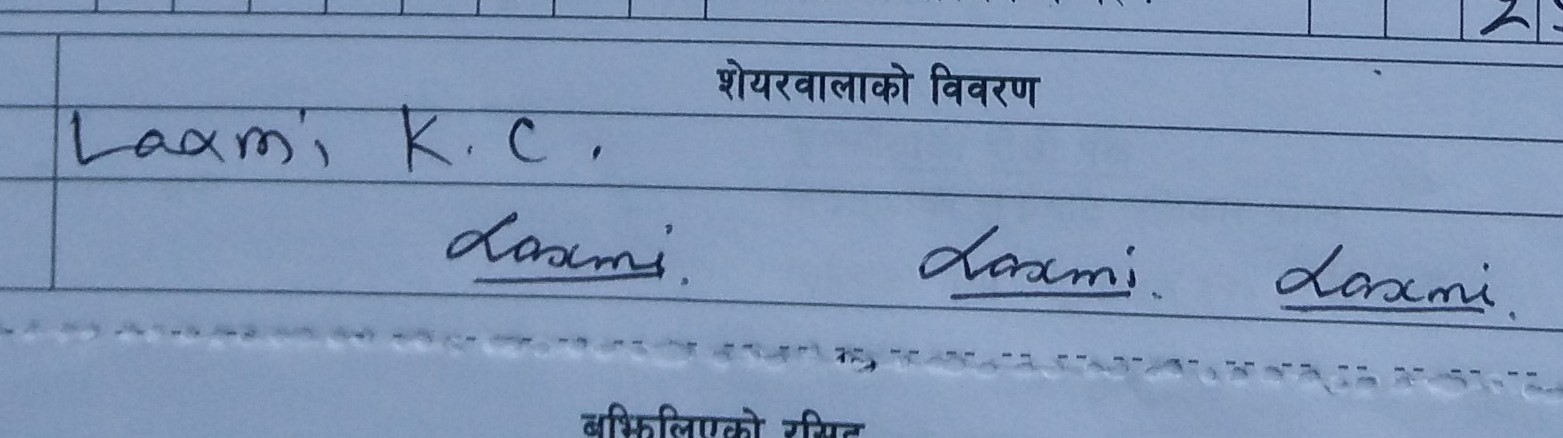 2
शेयरवालाको विवरण
Laxmi K. C.
Laxmi. Laxmi. Laxmi.
बुझिलिएको रसिद